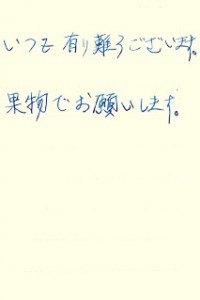 いつも有り難うございます。
果物でお願いします。